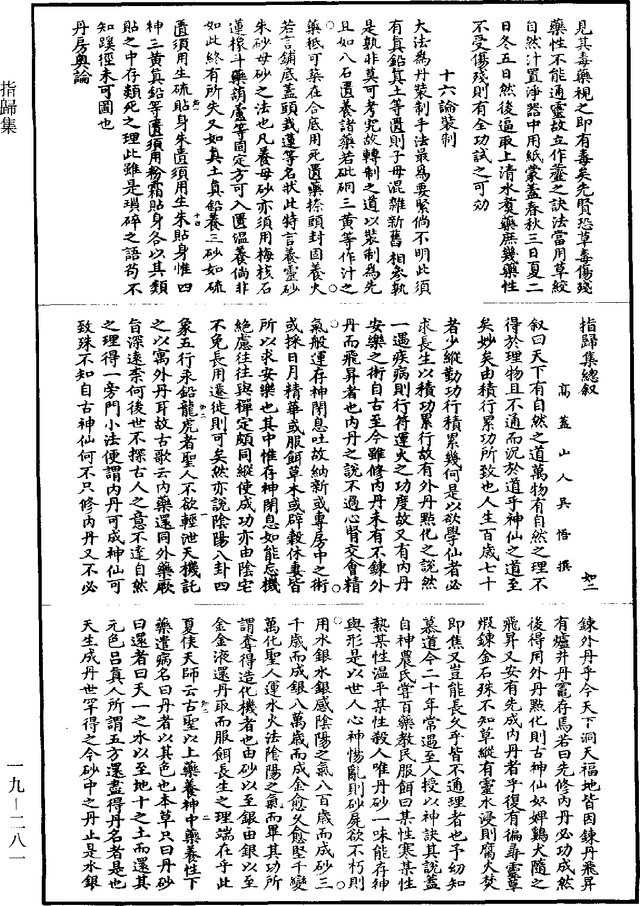 見其毒藥視之即有毒矣先賢恐草毒傷殘
藥性不能通靈故立作虀之訣法當用草絞
自然汁置淨器中用紙蒙蓋春秋三日夏二
日冬五日然後逼取上清水煑藥庶幾藥性
不受傷殘則有全功試之可効
十六論裝制
大法為丹裝制手法最為要緊倘不明此須
有真鉛真土等匱則子母混雜新舊相參孰
是孰非莫可考究故轉制之道以裝制為先
且如八石匱養諸藥若砒硇三黃等作汁之
藥柢可築在合底用死匱藥捺頭封固養火
若言鋪底蓋頭栽蓮等名狀此特言養靈砂
朱砂母砂之法也凡養母砂亦須用梅核石
蓮橡斗藥葫蘆等固定方可入匱溫養倘非
如此終有所失又如真土真鉛養三砂如硫
匱須用生硫貼身朱匱須用生朱貼身惟四
神三黃真鉛等匱須用粉霜貼身各以其類
貼之中存顛死之理此雖是瑣碎之語苟不
知蹊徑未可圖也
丹房奧論
指歸集總叙 如二
高蓋山人吳悞撰
叙曰天下有自然之道萬物有自然之理不
得於理物且不通而況於道乎神仙之道至
矣妙矣由積行累功所致也人生百歲七十
者少縱勤功行積累幾何是以欲學仙者必
求長生以積功累行故有外丹點化之說然
一遇疾病則行符運火之功度故又有內丹
安樂之術自古至今雖修內丹未有不鍊外
丹而飛昇者也內丹之說不過心腎交會精
氣般運存神閉息吐故納新或專房中之術
或採日月精華或服餌草木或辟穀休妻皆
所以求安樂也其中惟存神閉息如能忘機
絕慮往往與禪定頗同縱使成功亦由陰宅
不免長用遷徙則可矣然亦說陰陽八卦四
象五行汞鉛龍虎者聖人不欲輕泄天機託
之以寓外丹耳故古歌云內藥還同外藥厥
旨深遠柰何後世不探古人之意不達自然
之理得一旁門小法便謂內丹可成神仙可
致殊不知自古神仙何不只修內丹又不必
鍊外丹乎今天下洞天福地皆因鍊丹飛昇
有爐井丹竈存焉若曰先修內丹必功成然
後得用外丹點化則古神仙奴婢鷄犬隨之
飛昇又安有先成內丹者乎復有徧尋靈草
煅鍊金石殊不知草縱有靈水浸則腐火焚
即焦又豈能長久乎皆不通理者也予幼知
慕道今二十年常遇至人授以神訣其說蓋
自神農氏嘗百藥教民服餌曰某性寒某性
熱某性溫平某性殺人唯丹砂一味能存神
與形是以世人心神惕亂則砂屍欲不朽則
用水銀水銀感陰陽之氣八百歲而成砂三
千歲而成銀八萬歲而成金愈久愈堅千變
萬化聖人運水火法陰陽之氣而畢其功所
謂奪得造化機者也由砂以至銀由銀以至
金金液還丹取而服餌長生之理端在乎此
夏侯天師云古聖以上藥養神中藥養性下
藥遣病名曰丹者以其色也本草只曰丹砂
曰還者曰天一之水以至地十之土而還其
元色吕真人所謂五方還盡得丹名者是也
天生成丹世罕得之今砂中之丹止是水銀
指歸集
一九—二八一